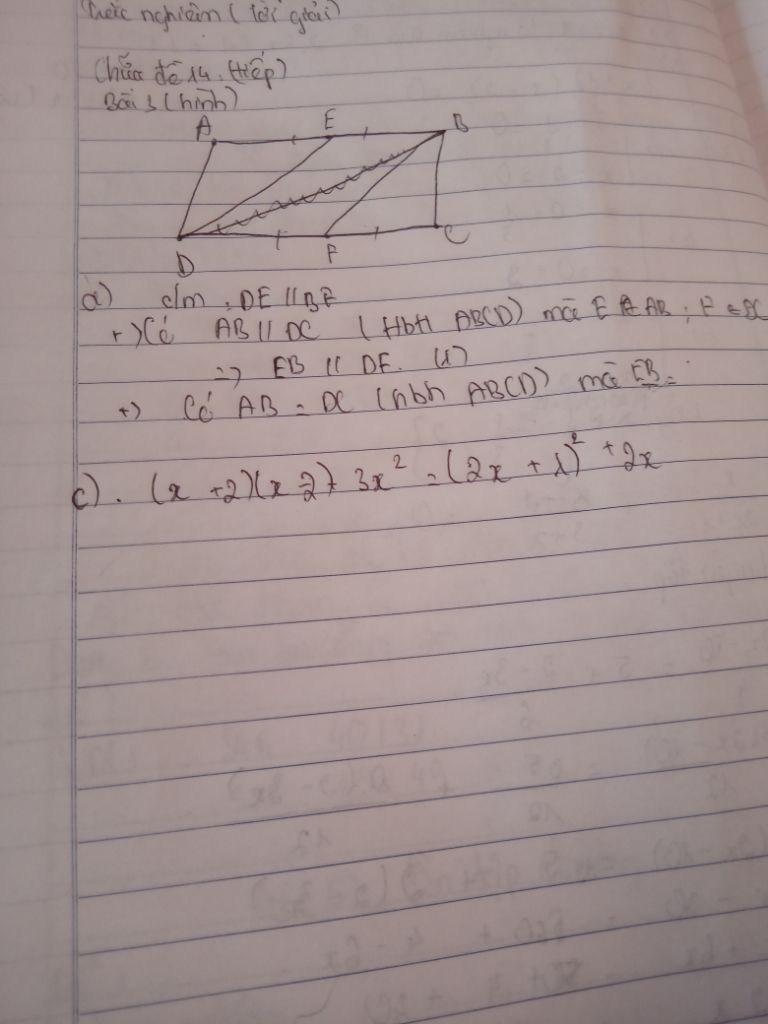 nghiệm (lời giải)
Chữa đề 14. (tiếp)
Bài 3 (hình)
A E B
D F C
a) c/m : DE // BF
+) Có AB // DC (Hbh ABCD) mà E ∈ AB ; F ∈ DC
=> EB // DF. (1)
+) Có AB = DC (hbh ABCD) mà EB =
c). (x +2)(x -2) + 3x² = (2x + 1)² + 2x